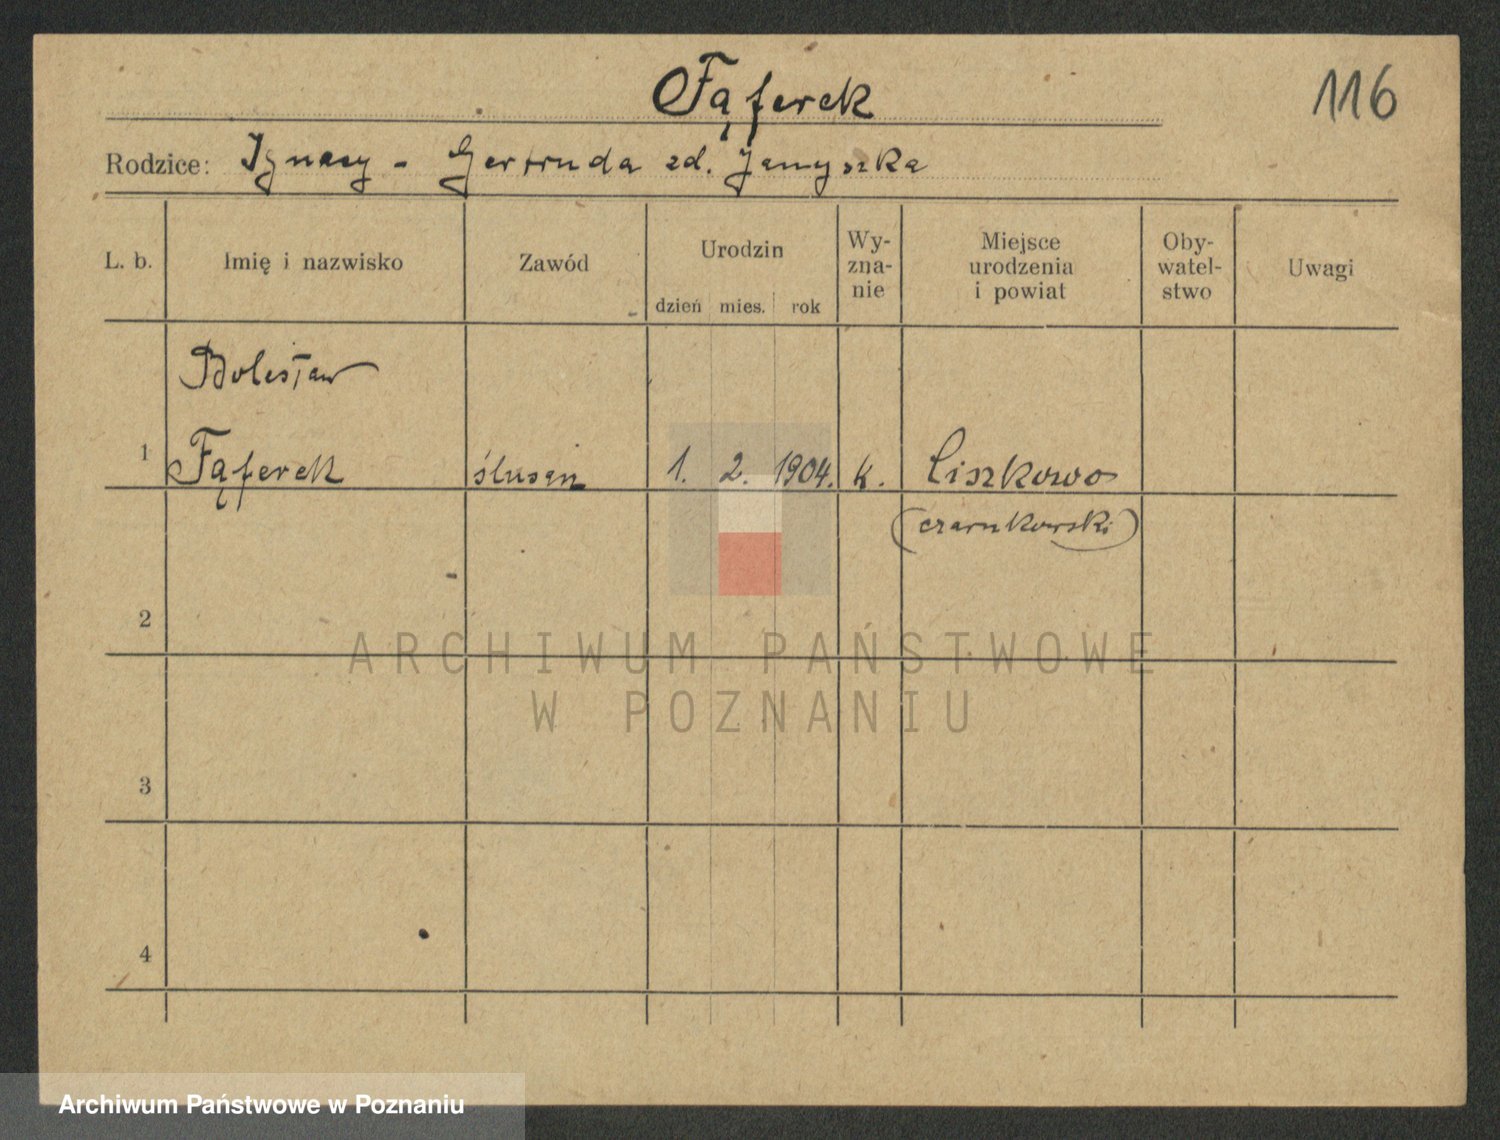 Fąferek
116
Rodzice: Ignacy - Gertruda zd. Janyszka
L. b.
Imię i nazwisko
Zawód
Urodzin
dzień mies. rok
Wy-
zna-
nie
Miejsce
urodzenia
i powiat
Oby-
watel-
stwo
Uwagi
Bolesław
1 Fąferek ślusarz 1. 2. 1904. k. Liszkowo
(czarnkowski)
2
3
4
ARCHIWUM PAŃSTWOWE
W POZNANIU
Archiwum Państwowe w Poznaniu